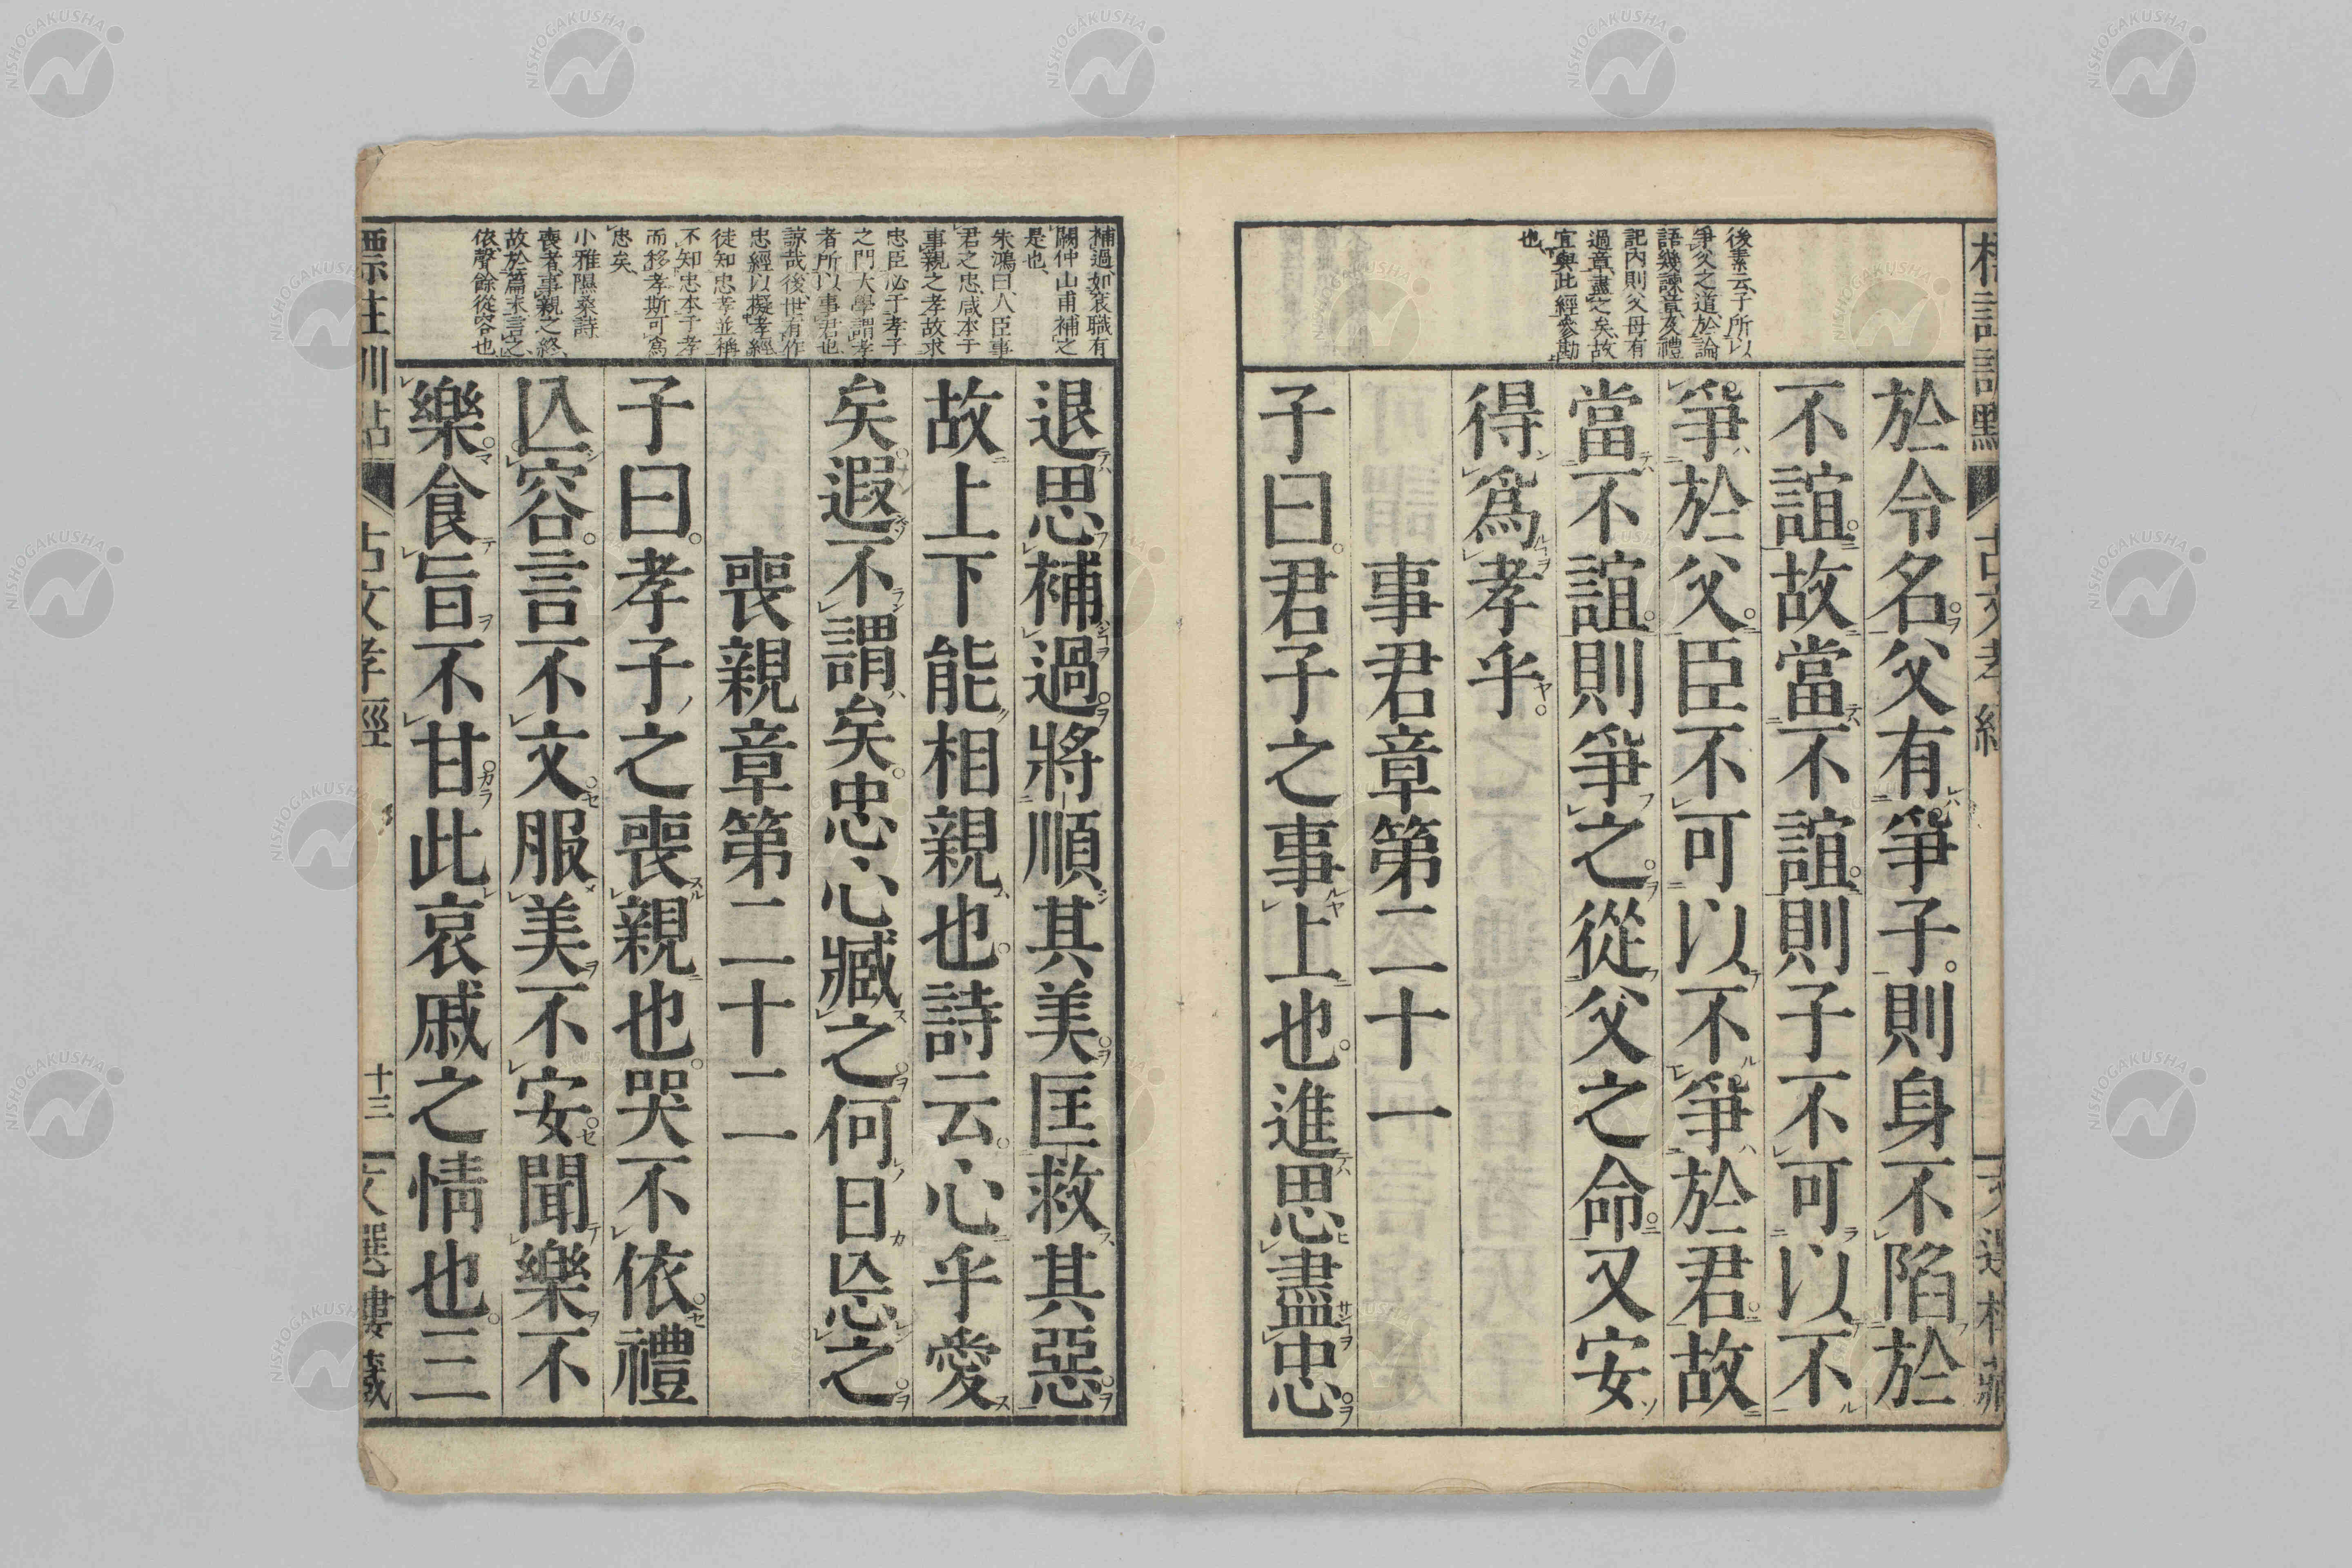 後素云子所以
爭父之道於論
語幾諫章及禮
記內則父母有
過章盡之矣故
宜與此經參勘
也
於令名父有爭子則身不陷於
不誼故當不誼則子不可以不
爭於父臣不可以不爭於君故
當不誼則爭之從父之命又安
得爲孝乎
事君章第二十一
子曰君子之事上也進思盡忠
補過如袞職有
闕仲山甫補之
是也
朱鴻曰人臣事
君之忠咸本于
事親之孝故求
忠臣必于孝子
之門大學謂孝
者所以事君也
諒哉後世有作
忠經以擬孝經
徒知忠孝並稱
不知忠本于孝
而移孝斯可爲
忠矣
小雅隰桑詩
喪者事親之終
故於篇末言之
依聲餘從容也
退思補過將順其美匡救其惡
故上下能相親也詩云心乎愛
矣遐不謂矣忠心臧之何日忘之
喪親章第二十二
子曰孝子之喪親也哭不依禮
亡容言不文服美不安聞樂不
樂食旨不甘此哀戚之情也三
標註訓點
古文孝經
十三
文選樓藏
NISHOGAKUSHA